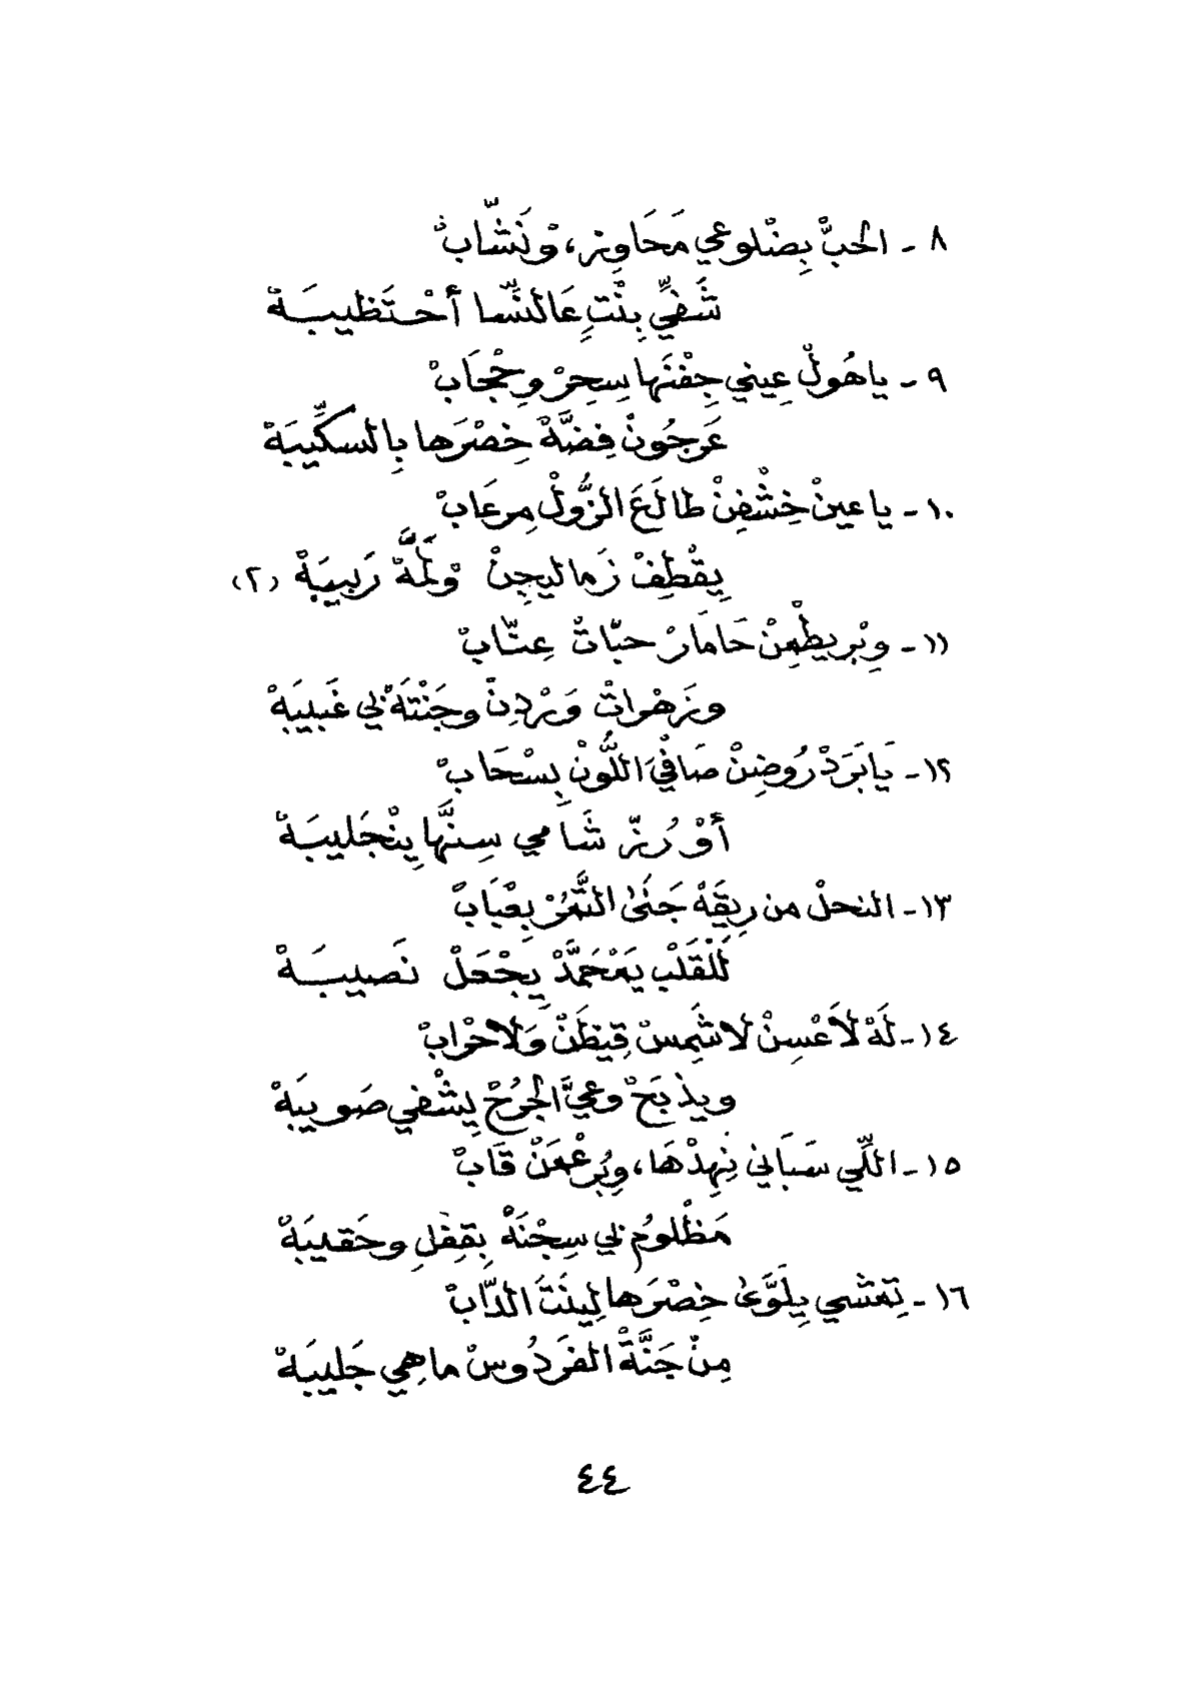 ٨ - الحبّْ بِضْلوعي مَحَاوِر، وْنَشّابْ
شَفيِّ بِنْتٍ عَالنِّسا أحْتَظيبَهْ
٩ - ياهُولْ عِيني جِفْنَها سِحِرْ وحْجَابْ
عَرجُونْ فِضَّهْ خِصْرَها بِالسكِّيبَهْ
١٠ - ياعينْ خِشْفِنْ طالَعَ الزُّولْ مِرعَابْ
يِقْطِفْ زَماليجِنْ وْلَمَّهْ رَبيبَهْ (٢)
١١ - وِبْريطْمِنْ حَامَارْ حبّاتْ عِنّابْ
وزَهْواتْ وَرْدِنْ وجَنْتَهْ لي غَبيبَهْ
١٢ - يَابَرَدْ رُوضِنْ صَافْيَ اللُّونْ بِسْحَابْ
أوْ رُزّ شَامي سِنَّها يِنْجَليبَهْ
١٣ - النحلْ من رِيقَهْ جَنَىٰ التَّمُرْ بِعْبَابْ
لَلْقَلْب يَمْحَمَّدْ يِجْعَلْ نَصيبَهْ
١٤ - لَهْ لاَعْسِنْ لاشَمِسْ قِيظَنْ وَلاحْرابْ
ويذبَحْ وعيَّ الجرُحْ يِشْفي صَوِيبَهْ
١٥ - اللِّي سَبَاني نِهِدْهَا، وبُرْعْمَنْ قَابْ
مَظْلومْ لي سِجْنَهْ بِقفِل وحَقيبَهْ
١٦ - تِمشي بِلَوَّىٰ خِصْرَها لِينَتَ الدَّابْ
مِنْ جَنَّةْ الفَردُوسْ ماهِي جَليبَهْ
٤٤